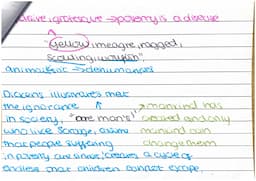 grotesque → poverty is a disease
"yellow, meagre, ragged,
scowling, wolfish"
animalistic → dehumanised
Dickens illustrates that
the ignorance ↑ → mankind has
in society, "are man's" created and only
who like Scrooge, assume mankind can
that people suffering change them
in poverty are creates a cycle of
endless that children cannot escape.